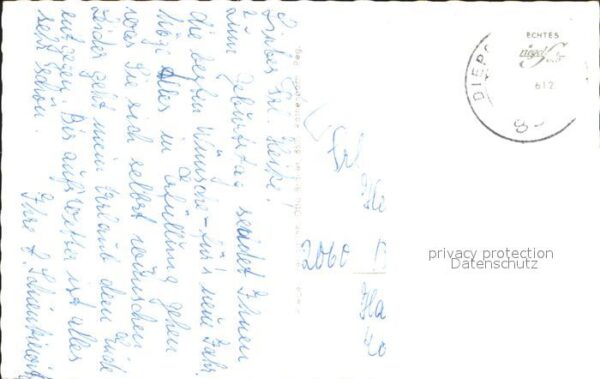 Liebes Frl. Heike!
Zum Geburtstag sendet Ihnen
die besten Wünsche - für's neue Jahr.
Möge Alles in Erfüllung gehen
was Sie sich selbst wünschen
Leider geht mein Urlaub dem Ende
entgegen. Bis auf's Wetter ist alles
sehr schön.
Ihre L.
Frl
He
2060
Ha
ECHTES
612
DIEPO
privacy protection
Datenschutz